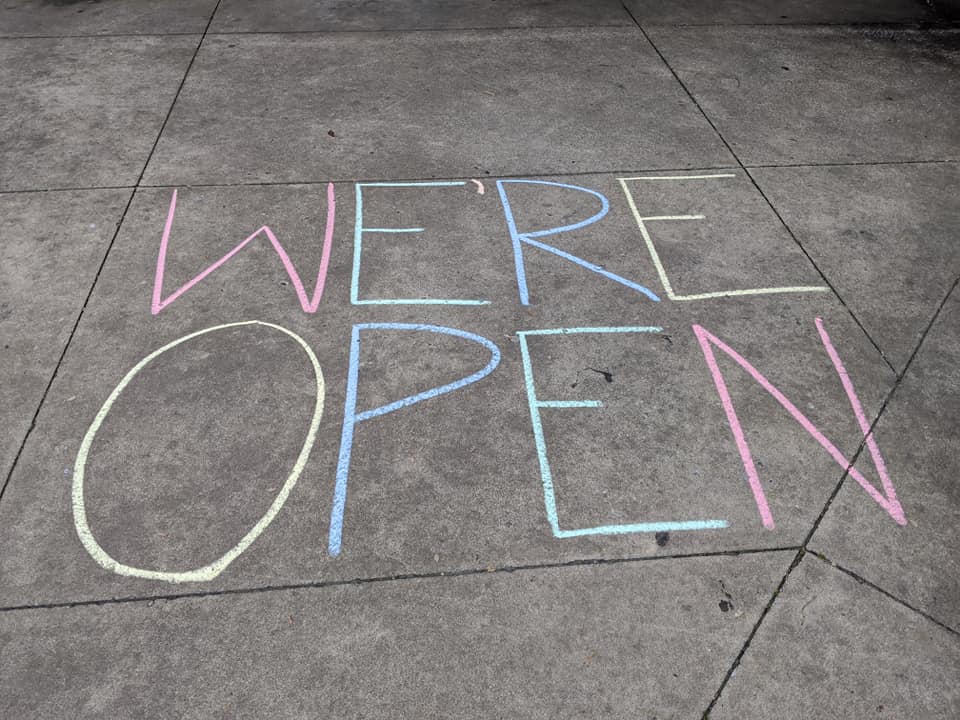 WE'RE
OPEN